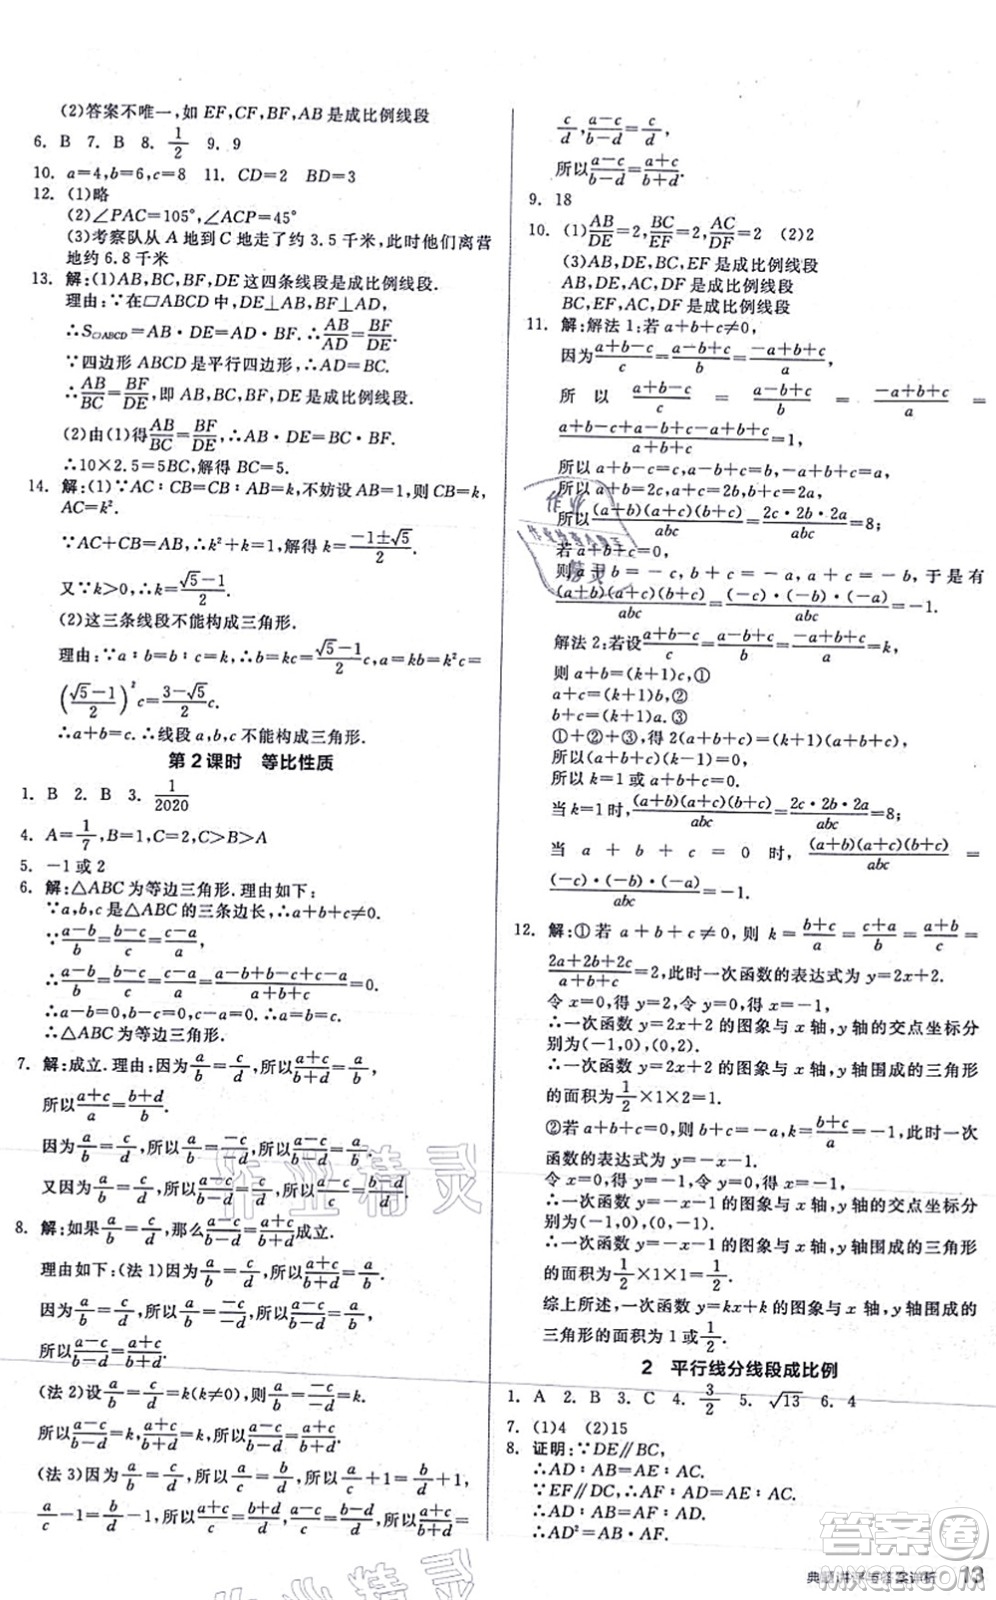 (2)答案不唯一,如 EF,CF,BF,AB 是成比例线段
6. B 7. B 8. 1/2 9. 9
10. a=4,b=6,c=8 11. CD=2 BD=3
12. (1)略
(2)∠PAC=105°,∠ACP=45°
(3)考察队从 A 地到 C 地走了约 3.5 千米,此时他们离营
地约 6.8 千米
13. 解:(1)AB,BC,BF,DE 这四条线段是成比例线段.
理由:∵在▱ABCD 中,DE⊥AB,BF⊥AD,
∴S▱ABCD=AB·DE=AD·BF.∴AB/AD=BF/DE.
∵四边形 ABCD 是平行四边形,∴AD=BC.
∴AB/BC=BF/DE,即 AB,BC,BF,DE 是成比例线段.
(2)由(1)得AB/BC=BF/DE,∴AB·DE=BC·BF.
∴10×2.5=5BC,解得 BC=5.
14. 解:(1)∵AC∶CB=CB∶AB=k,不妨设 AB=1,则 CB=k,
AC=k².
∵AC+CB=AB,∴k²+k=1.∴k=(-1±√5)/2.
又∵k>0,∴k=(√5-1)/2.
(2)这三条线段不能构成三角形.
理由:∵a∶b=b∶c=k,∴b=kc=(√5-1)/2c,a=kb=k²c=
((√5-1)/2)²c=(3-√5)/2c.
∴a+b=c.∴线段 a,b,c 不能构成三角形.
第 2 课时 等比性质
1. B 2. B 3. 1/2020
4. A=1/7,B=1,C=2,C>B>A
5. -1 或 2
6. 解:△ABC 为等边三角形.理由如下:
∵a,b,c 是△ABC 的三条边长,∴a+b+c≠0.
∵(a-b)/b=(b-c)/c=(c-a)/a,
∴(a-b)/b=(b-c)/c=(c-a)/a=(a-b+b-c+c-a)/(a+b+c)=0.
∴a-b=0,b-c=0,c-a=0.∴a=b=c.
∴△ABC 为等边三角形.
7. 解:成立.理由:因为a/b=c/d,所以a/c=b/d,
所以(a+c)/a=(b+d)/b.
因为a/b=c/d,所以a/b=-c/-d,所以a/b=(a-c)/(b-d).
又因为a/b=c/d,所以a/b=(a+c)/(b+d),所以(a-c)/(b-d)=(a+c)/(b+d).
8. 解:如果a/b=c/d,那么(a-c)/(b-d)=(a+c)/(b+d)成立.
理由如下:(法 1)因为a/b=c/d,所以a/b=(a+c)/(b+d).
因为a/b=c/d,所以a/b=-c/-d,所以a/b=(a-c)/(b-d),
所以(a-c)/(b-d)=(a+c)/(b+d).
(法 2)设a/b=c/d=k(k≠0),则a/b=-c/-d=k,所以
(a-c)/(b-d)=k,(a+c)/(b+d)=k,所以(a-c)/(b-d)=(a+c)/(b+d).
(法 3)因为a/b=c/d,所以a/c=b/d,所以a/c+1=b/d+1,
a/c-1=b/d-1,所以(a+c)/c=(b+d)/d,(a-c)/c=(b-d)/d,所以(a+c)/(b+d)=
c/d,(a-c)/(b-d)=c/d,
所以(a-c)/(b-d)=(a+c)/(b+d).
9. 18
10. (1)AB/DE=2,BC/EF=2,AC/DF=2 (2)2
(3)AB,DE,BC,EF 是成比例线段
AB,DE,AC,DF 是成比例线段
BC,EF,AC,DF 是成比例线段
11. 解:解法 1:若 a+b+c≠0,
因为(a+b-c)/c=(a-b+c)/b=(-a+b+c)/a,
所以(a+b-c)/c=(a-b+c)/b=(-a+b+c)/a=
(a+b-c+a-b+c-a+b+c)/(a+b+c)=1,
所以 a+b-c=c,a-b+c=b,-a+b+c=a,
所以 a+b=2c,a+c=2b,b+c=2a,
所以(a+b)(a+c)(b+c)/abc=2c·2b·2a/abc=8;
若 a+b+c=0,
则 a+b=-c,b+c=-a,a+c=-b,于是有
(a+b)(a+c)(b+c)/abc=(-c)·(-b)·(-a)/abc=-1.
解法 2:若设(a+b-c)/c=(a-b+c)/b=(-a+b+c)/a=k,
则 a+b=(k+1)c,①
a+c=(k+1)b,②
b+c=(k+1)a.③
①+②+③,得 2(a+b+c)=(k+1)(a+b+c),
所以(k-1)(a+b+c)=0,
所以 k=1 或 a+b+c=0.
当 k=1 时,(a+b)(a+c)(b+c)/abc=2c·2b·2a/abc=8;
当 a+b+c=0 时,(a+b)(a+c)(b+c)/abc=
(-c)·(-b)·(-a)/abc=-1.
12. 解:①若 a+b+c≠0,则 k=(b+c)/a=(c+a)/b=(a+b)/c=
(2a+2b+2c)/(a+b+c)=2,此时一次函数的表达式为 y=2x+2.
令 x=0,得 y=2,令 y=0,得 x=-1,
∴一次函数 y=2x+2 的图象与 x 轴,y 轴的交点坐标分
别为(-1,0),(0,2).
∴一次函数 y=2x+2 的图象与 x 轴,y 轴围成的三角形
的面积为1/2×1×2=1.
②若 a+b+c=0,则 b+c=-a,k=(b+c)/a=-1,此时一次
函数的表达式为 y=-x-1.
令 x=0,得 y=-1,令 y=0,得 x=-1,
∴一次函数 y=-x-1 的图象与 x 轴,y 轴的交点坐标分
别为(-1,0),(0,-1).
∴一次函数 y=-x-1 的图象与 x 轴,y 轴围成的三角形
的面积为1/2×1×1=1/2.
综上所述,一次函数 y=kx+k 的图象与 x 轴,y 轴围成的
三角形的面积为 1 或1/2.
2 平行线分线段成比例
1. A 2. B 3. C 4. 3/2 5. √13 6. 4
7. (1)4 (2)15
8. 证明:∵DE∥BC,
∴AD∶AB=AE∶AC.
∵EF∥DC,∴AF∶AD=AE∶AC.
∴AD∶AB=AF∶AD.
∴AD²=AB·AF.
典题讲评与答案详析 13
作业精灵
答案圈